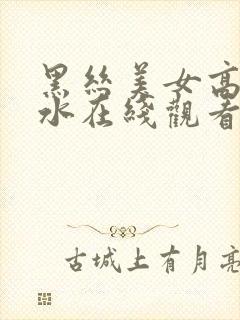 黑丝美女高
水在线观看
古城上有月亮